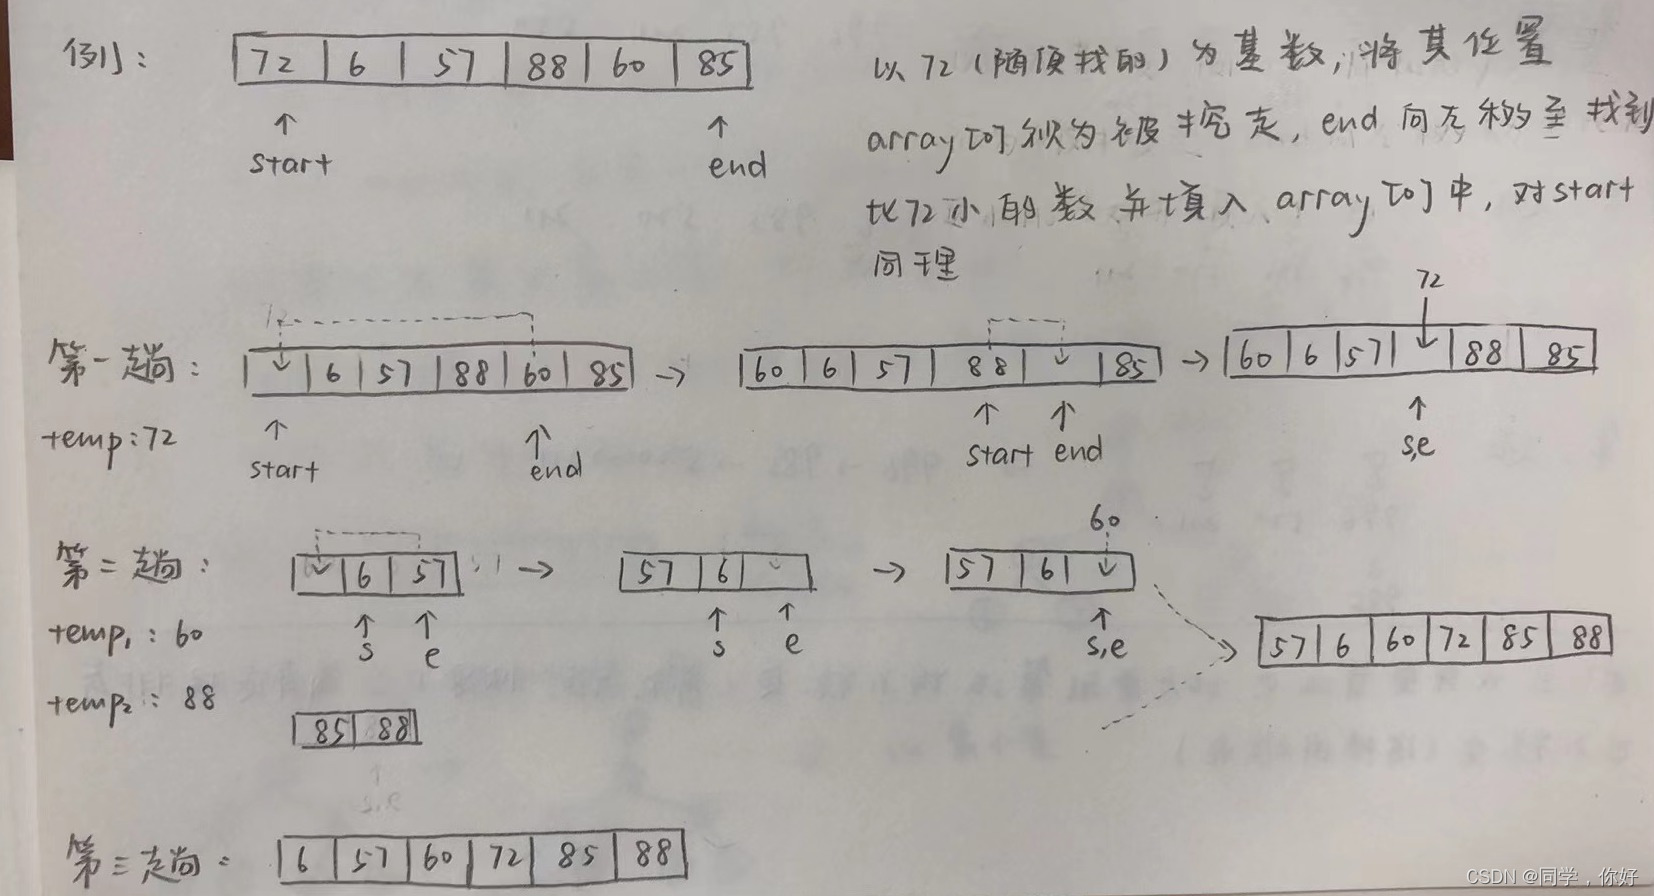 例1：
72 6 57 88 60 85
start end
以72（随便找的）为基数，将其位置
array[0]视为被挖走，end向左移至找到
比72小的数并填入array[0]中，对start
同理
第一趟：
temp:72
6 57 88 60 85 →
start end
60 6 57 88 85 →
start end
72
60 6 57 88 85
s,e
第二趟：
temp₁：60
temp₂：88
6 57 →
s e
57 6 →
s e
60
57 6
s,e
85 88
57 6 60 72 85 88
第三趟：
6 57 60 72 85 88
CSDN @同学，你好